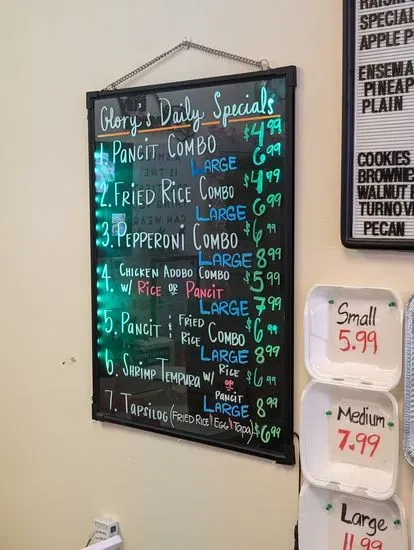 Glory's Daily Specials
1. PANCIT COMBO $4.99
LARGE 6.99
2. FRIED RICE COMBO $4.99
LARGE 6.99
3. PEPPERONI COMBO $6.99
LARGE 8.99
4. CHICKEN ADOBO COMBO
W/ RICE OR PANCIT $5.99
LARGE 7.99
5. PANCIT & FRIED RICE COMBO $6.99
LARGE 8.99
6. SHRIMP TEMPURA W/ RICE OR PANCIT $6.99
LARGE 8.99
7. TAPSILOG (FRIED RICE | EGG | TAPA) $6.99
SPECIAL
APPLE P
ENSEMA
PINEAP
PLAIN
COOKIES
BROWNIE
WALNUT
TURNOV
PECAN
Small
5.99
Medium
7.99
Large
11.99